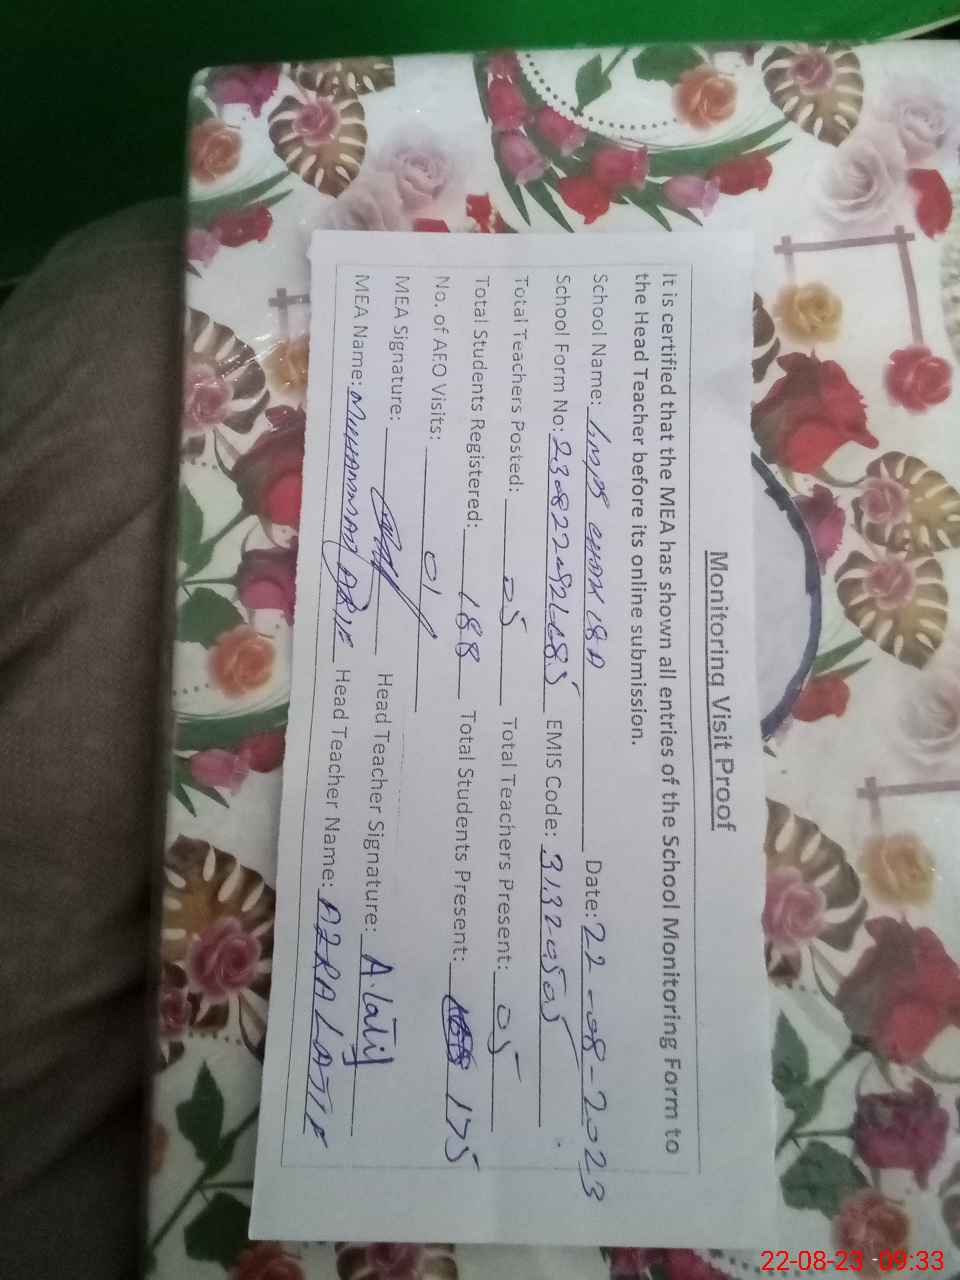 Monitoring Visit Proof
It is certified that the MEA has shown all entries of the School Monitoring Form to
the Head Teacher before its online submission.
School Name: 18A Date: 22-08-2023
School Form No: EMIS Code: 31320505
Total Teachers Posted: 05 Total Teachers Present: 05
Total Students Registered: 188 Total Students Present: 175
No. of AEO Visits: 01
MEA Signature: Head Teacher Signature: A.latif
MEA Name: MUHAMMAD ARIF Head Teacher Name: AZRA LATIF
22-08-23 09:33